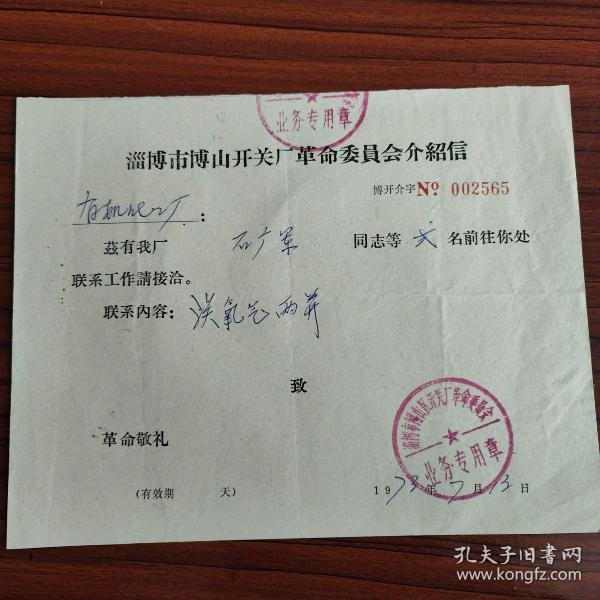 业务专用章
淄博市博山开关厂革命委員会介紹信
博开介字 № 002565
有机化工厂：
茲有我厂 石广军 同志等 弍 名前往你处
联系工作請接洽。
联系內容：送氧气两并
致
革命敬礼
淄博市博山区开关厂革命委員会
业务专用章
(有效期 天)
1973年7月13日
孔夫子旧书网
www.kongfz.com